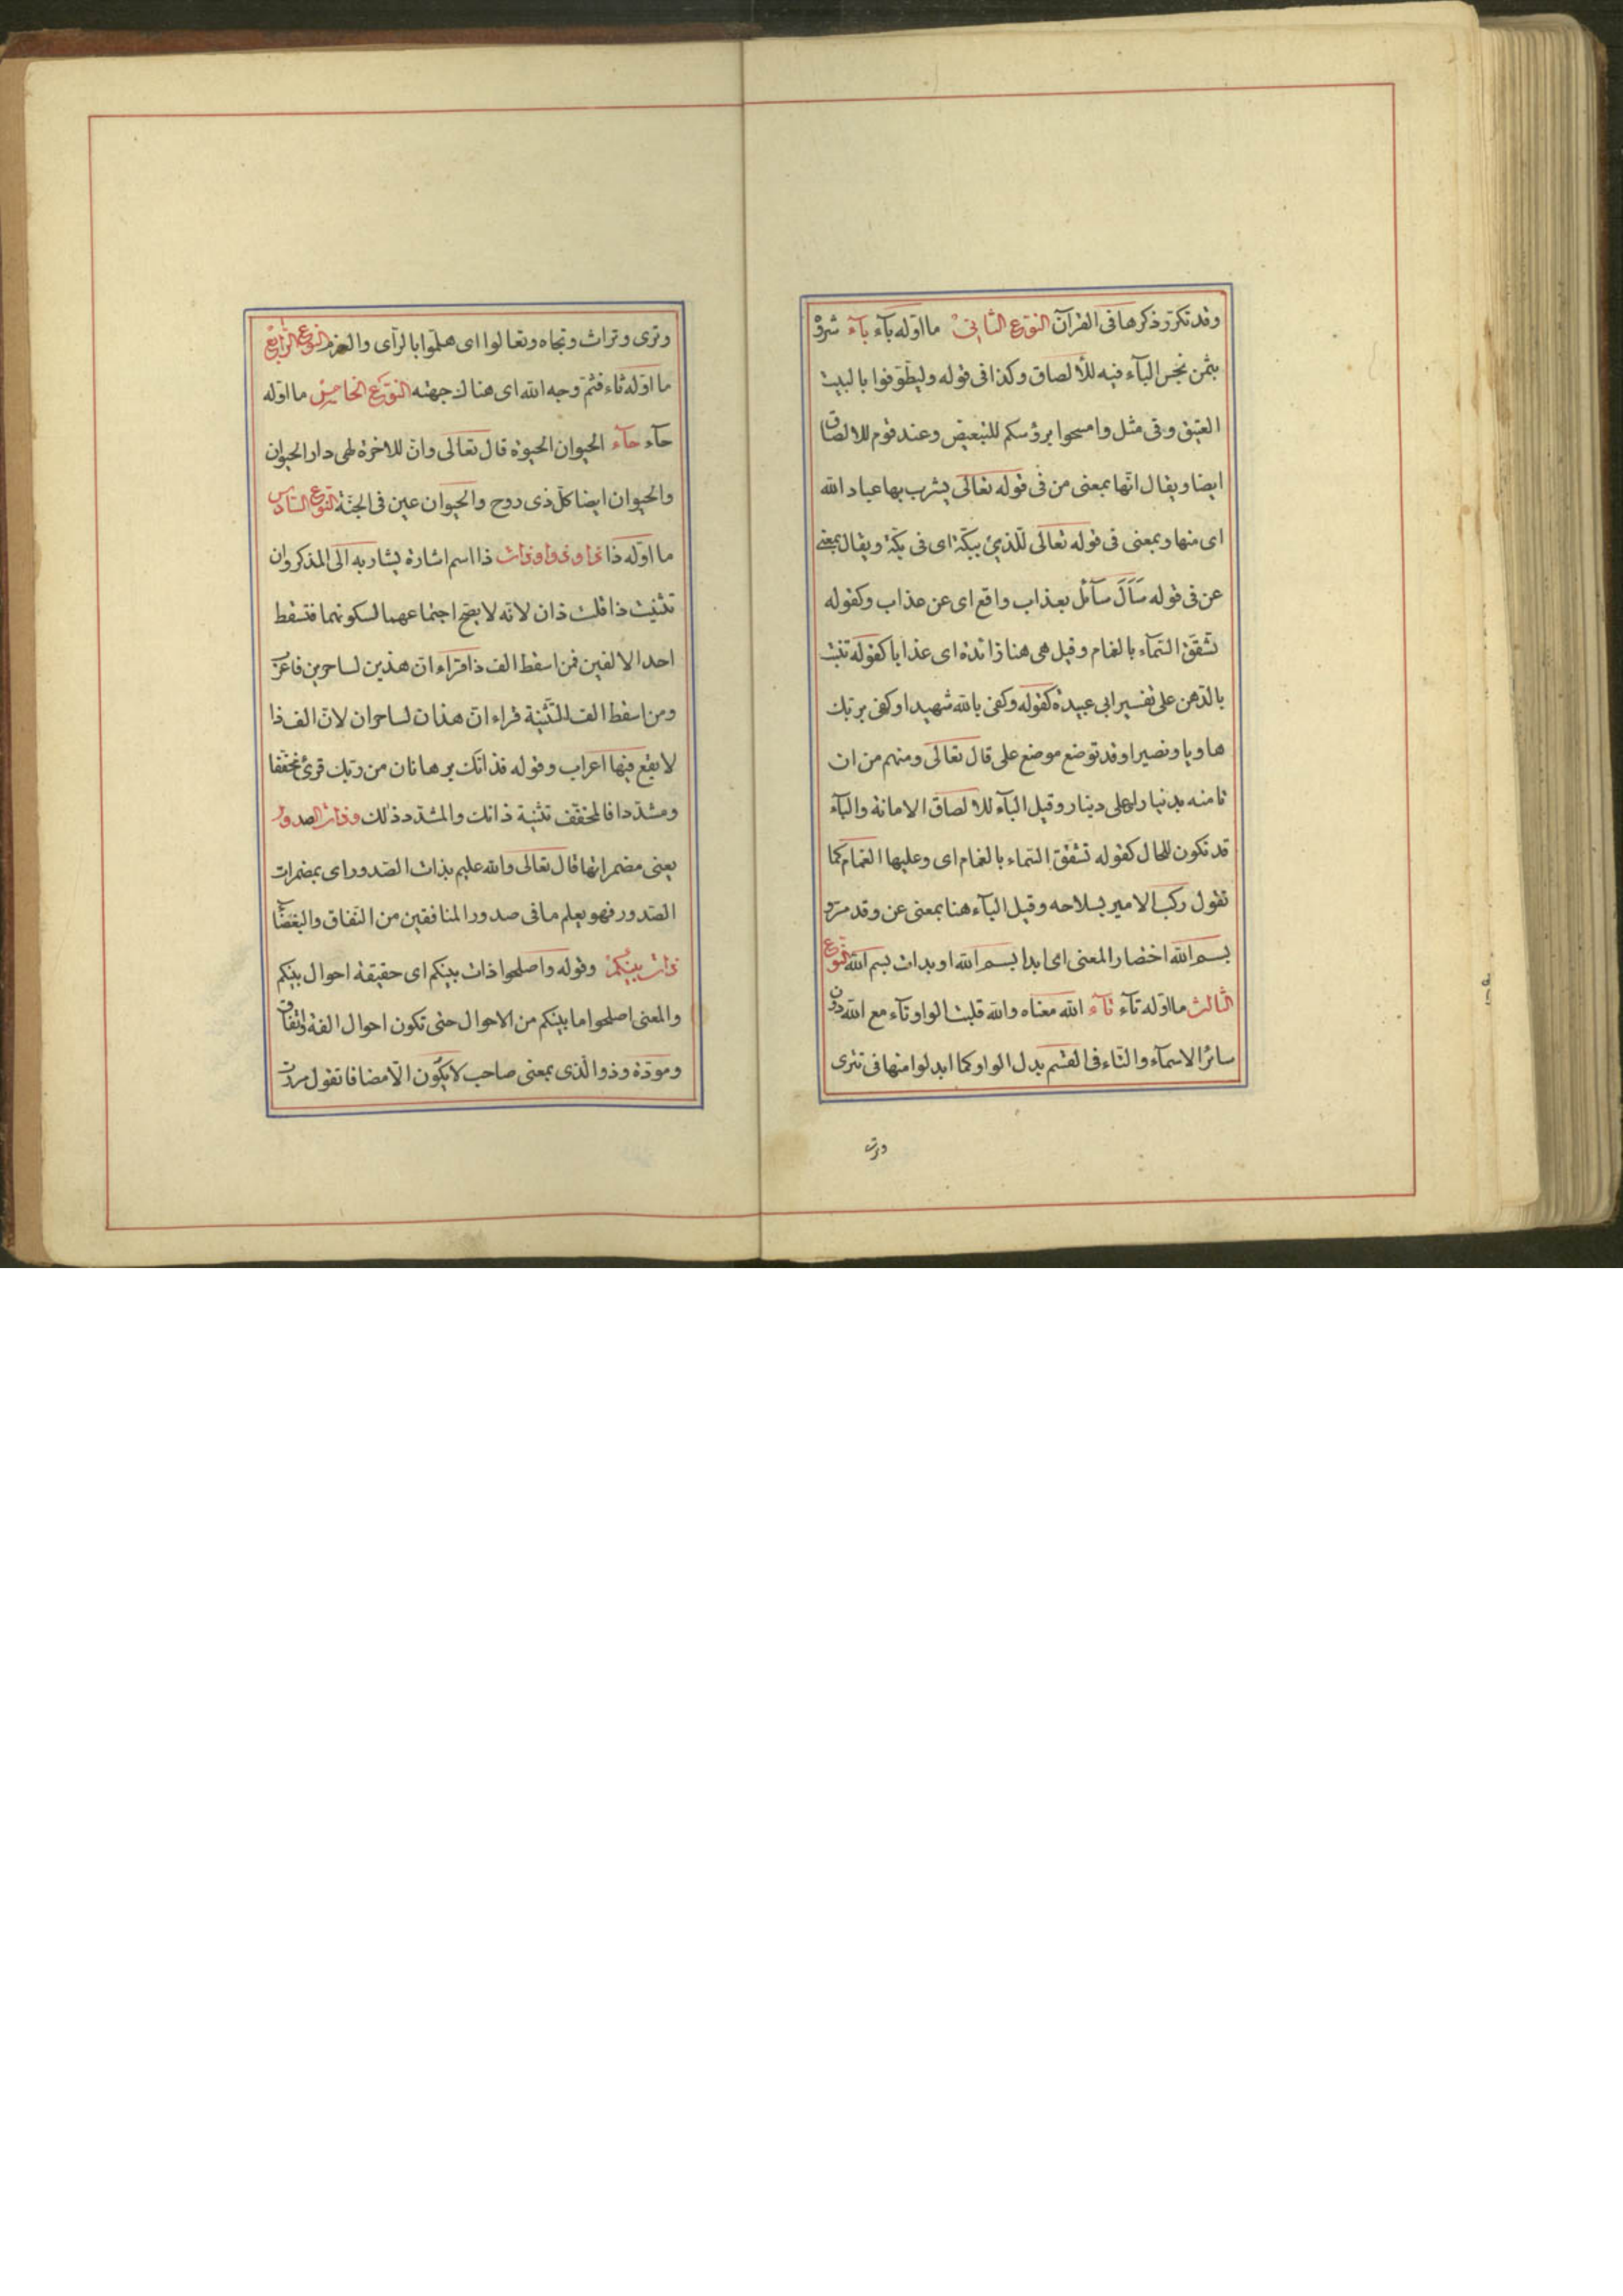 وقد تكرّر ذكرها فى القرآن النوع الثانى ما اوّله بآء بآء شروه
بثمن بخس البآء فيه للألصاق وكذا فى قوله وليطّوّفوا بالبيت
العتيق وفى مثل وامسحوا برؤسكم للتبعيض وعند قوم للالصاق
ايضا ويقال انّها بمعنى من فى قوله تعالى يشرب بها عباد الله
اى منها وبمعنى فى قوله تعالى للّذى ببكّة اى فى بكّة ويقال بمعنى
عن فى قوله سَاَلَ سآئل بعذاب واقع اى عن عذاب وكقوله
تشقّق السّمآء بالغمام وقيل هى هنا زائدة اى عذابا كقوله تنبت
بالدّهن على تفسير ابى عبيدة كقوله وكفى بالله شهيدا وكفى بربّك
هاديا ونصيرا وقد توضع موضع على قال تعالى ومنهم من ان
تامنه بدينار اى على دينار وقيل البآء للالصاق الامانة والبآء
قد تكون للحال كقوله تشقّق السّماء بالغمام اى وعليها الغمام كما
تقول ركب الامير بسلاحه وقيل البآء هنا بمعنى عن وقد مرّ و
بسم الله اختصار المعنى اى ابدا بسم الله او بدات بسم الله النّوع
الثالث ما اوّله تآء تآء الله معناه والله قلبت الواو تآء مع الله دون
سائر الاسمآء والتّاء فى القسم بدل الواو كما ابدلوا منها فى تترى
وترى وتراث وتجاه وتعالوا اى هلمّوا بالرّاى والعزم النوع الرّابع
ما اوّله ثاء فثمّ وجه الله اى هناك جهته النّوع الخامس ما اوّله
حآء حآء الحيوان الحيوة قال تعالى وانّ للاخرة لهى دار الحيوان
والحيوان ايضا كلّ ذى روح والحيوان عين فى الجنّة النّوع السّادس
ما اوّله ذا ذا وذو وذات ذا اسم اشارة يشار به الى المذكر وان
تثنيت ذا قلت ذان لانّه لا يصحّ اجتماعهما لسكونهما فتسقط
احد الالفين فمن اسقط الف ذا قراء انّ هذين لساحرين فاعرب
ومن اسقط الف التّثنية قراء انّ هذان لساحران لانّ الف ذا
لا يقع فيها اعراب وقوله فذانّك برهانان من ربّك قرئ مخفّفا
ومشدّدا فالمخفّف تثنية ذانك والمشدّد ذلك وذات الصدور
يعنى مضمراتها قال تعالى والله عليم بذات الصّدور اى بمضمرات
الصّدور فهو يعلم ما فى صدور المنافقين من النّفاق والبغضآ
ذات بينكم وقوله واصلحوا ذات بينكم اى حقيقة احوال بينكم
والمعنى اصلحوا ما بينكم من الاحوال حتى تكون احوال الفة واتّفاق
ومودّة وذو الّذى بمعنى صاحب لا يكون الّا مضافا تقول مررت